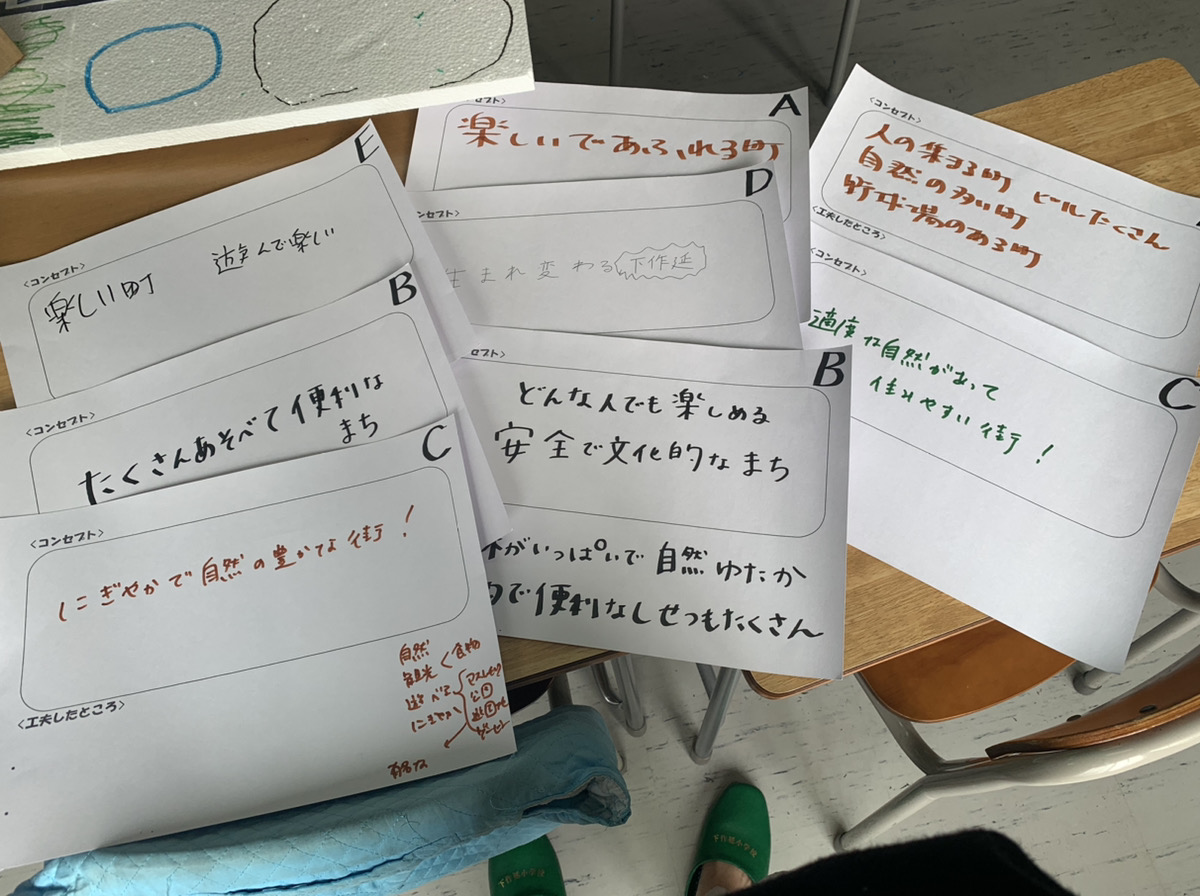 E
<コンセプト>
楽しい町 遊んで楽しい
B
<コンセプト>
たくさんあそべて便利な
まち
C
<コンセプト>
にぎやかで自然の豊かな街!
<工夫したところ>
自然
観光<食物
遊べる
にぎやか
有名な
A
セプト>
楽しいであふれる町
D
コンセプト>
生まれ変わる下作延
B
セプト>
どんな人でも楽しめる
安全で文化的なまち
がいっぱいで自然ゆたか
で便利なしせつもたくさん
<コンセプト>
人の集まる町 ビルたくさん
自然の多い町
野球場のある町
<工夫したところ>
C
コンセプト>
適度な自然があって
住みやすい街!
下作延小学校
下作延小学校